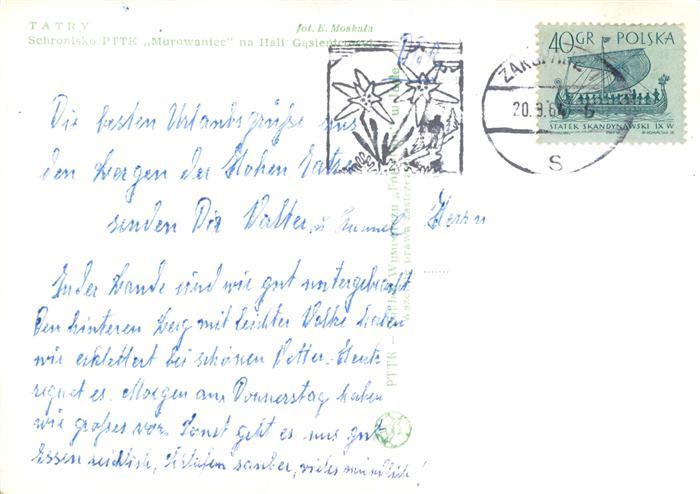 TATRY
fot. E. Moskała
Schronisko PTTK „Murowaniec” na Hali
40 GR POLSKA
STATEK SKANDYNAWSKI IX W
20.9.6
S
Die besten Urlaubsgrüße aus
den Bergen der Hohen Tatra
senden Dir Walter u.
Herrn
In der Baude sind wir gut untergebracht
Den hinteren Berg mit leichter Wolke haben
wir erklettert bei schönen Wetter. Heute
regnet es. Morgen am Donnerstag haben
wir großes vor. Sonst geht es uns gut
Essen reichlich, Schlafen sauber, vieles mündlich!
PTTK